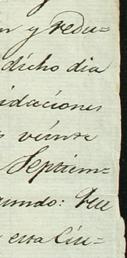 n y redu-
dicho dia
idaciones
s veinte
Septiem-
undo: Que
esta Ciu-